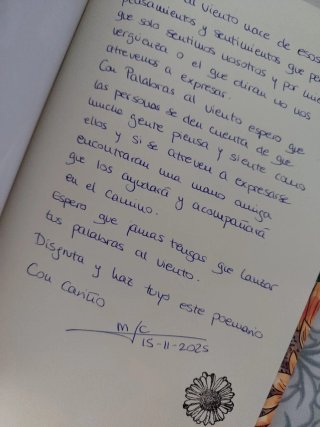 al Viento nace de esos
pensamientos y sentimientos que
que solo sentimos nosotros y por
verguenza o el que diran no nos
atrevemos a expresar.
Con Palabras al viento espero que
las personas se den cuenta de que
mucha gente piensa y siente como
ellos y si se atreven a expresarse
encontraran una mano amiga
que los ayudará y acompañará
en el camino.
espero que jamas tengas que lanzar
tus palabras al viento.
Disfruta y haz tuyo este poemario
Con cariño
M/C
15-11-2025